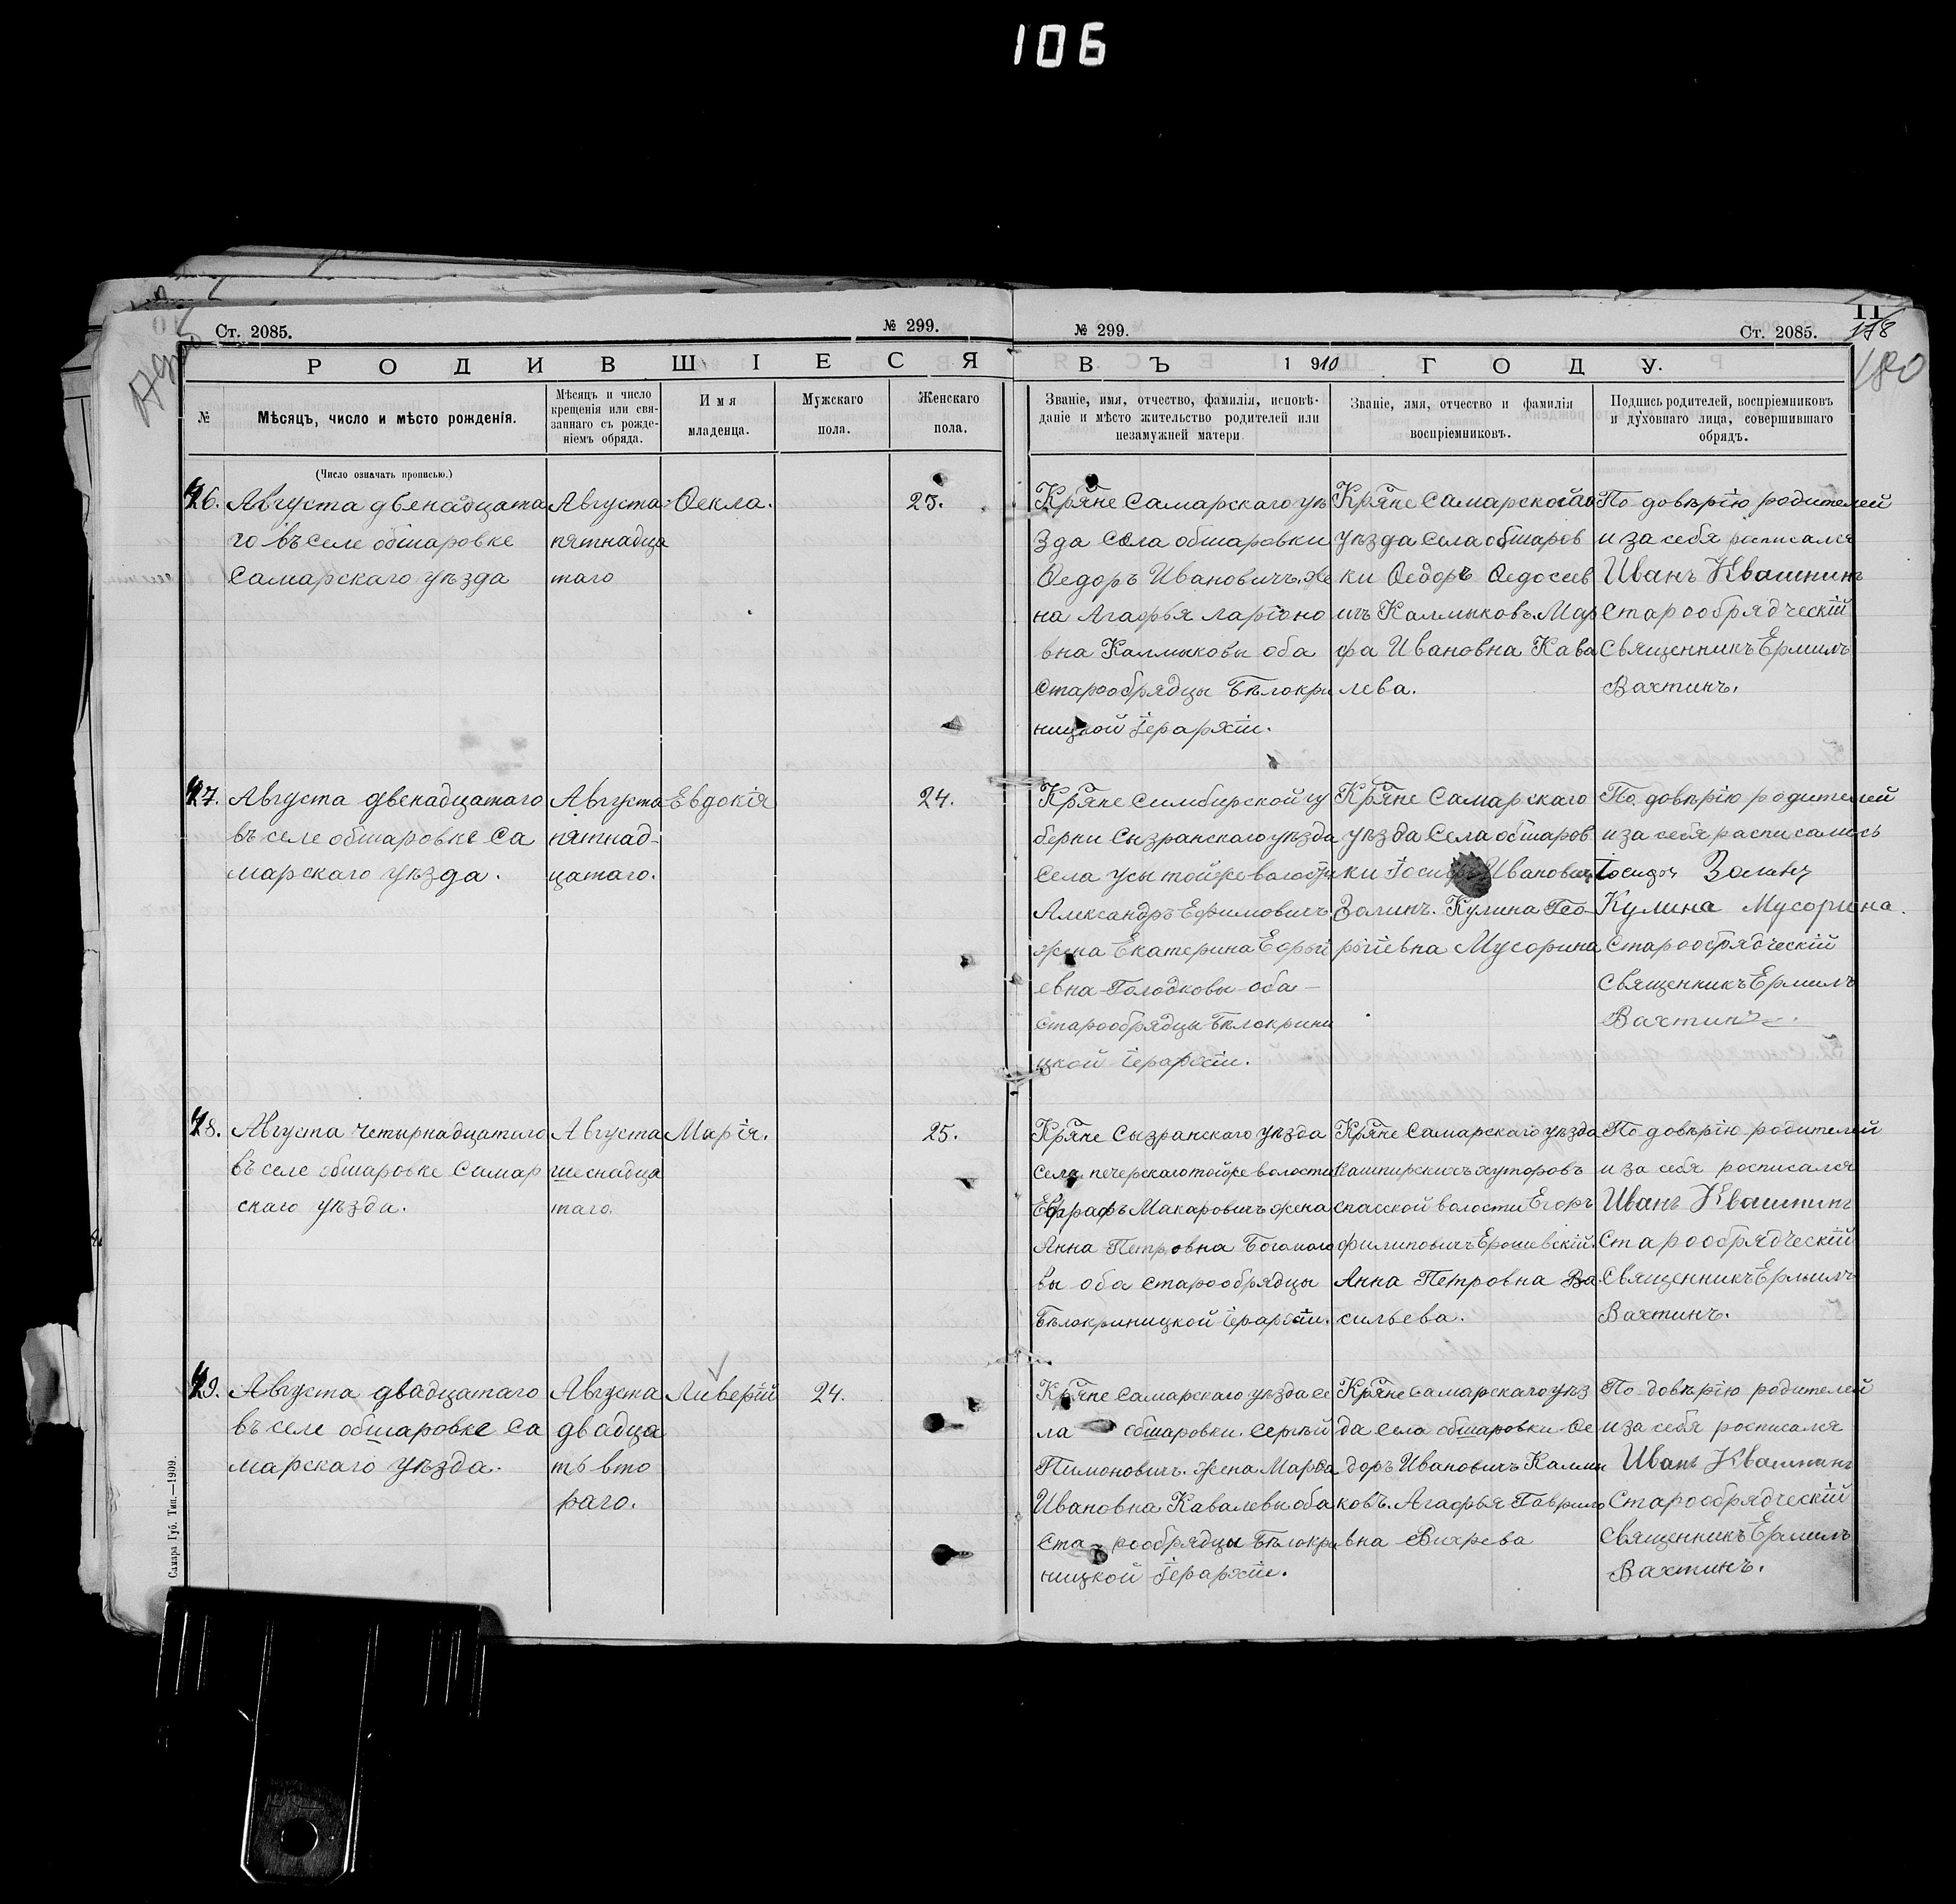 106
Ст. 2085.
№ 299.
№ 299.
Ст. 2085.
11
178
180
РОДИВШІЕСЯ
ВЪ 1910 ГОДУ.
№
Мѣсяцъ, число и мѣсто рожденія.
Мѣсяцъ и число крещенія или связаннаго съ рожденіемъ обряда.
Имя младенца.
Мужскаго пола.
Женскаго пола.
Званіе, имя, отчество, фамилія, исповѣданіе и мѣсто жительство родителей или незамужней матери
Званіе, имя, отчество и фамилія воспріемниковъ.
Подпись родителей, воспріемниковъ и духовнаго лица, совершившаго обрядъ.
(Число означать прописью.)
Августа двенадцата
го въ селе обшаровке
Самарскаго уѣзда
Августа
пятнадца
таго
Ѳекла.
23.
Кряне Самарскаго уѣ
зда села обшаровки
Ѳедоръ Ивановичъ. Же
на Агафья ларіоно
вна Калмыковы оба
старообрядцы Бѣлокри
ницкой іерархіи.
Кряне
уѣзда села обшаров
ки Ѳедоръ Ѳедосеев
ичъ Калмыковъ. Мар
фа Ивановна Кава
лева.
По довѣрію родителей
и за себя расписался
Иванъ Квашнинъ
Старообрядческій
Священникъ Ермилъ
Вахтинъ.
27.
Августа двенадцатаго
въ селе обшаровке Са
марскаго уѣзда.
Августа
пятнад-
цатаго.
Евдокія
24.
Кряне Симбирской гу
берни Сызранскаго уѣзда
Села усы тойже волости
Александръ Ефимовичъ
жена Екатерина
евна Голодковы оба-
старообрядцы Бѣлокрини
цкой іерархіи.
Кряне Самарскаго
уѣзда Села обшаров
ки Іосифъ Ивановичъ
Золинъ. Кулина Гео
ргіевна Мусорина
По довѣрію родителей
и за себя расписались
Іосифъ Золинъ
Кулина Мусорина.
Старообрядческій
Священникъ Ермилъ
Вахтинъ.
28.
Августа четырнадцатаго
въ селе обшаровке Самар
скаго уѣзда.
Августа
шеснадца
таго.
Марія.
25.
Кряне Сызранскаго уѣзда
Села печерскаго тойже волости
Евграфъ Макаровичъ жена
Анна Петровна Богомоло
вы оба старообрядцы
Бѣлокриницкой іерархіи.
Кряне Самарскаго уѣзда
Кашпирскихъ хуторовъ
спасской волости Егоръ
филиповичъ Ерошевскій.
Анна Петровна Ва
сильева.
По довѣрію родителей
и за себя росписался
Иванъ Квашнинъ
Старообрядческій
Священникъ Ермилъ
Вахтинъ.
29.
Августа двадцатаго
въ селе обшаровке Са
марскаго уѣзда.
Августа
двадца
ть вто
раго.
Ливерій
24.
Кряне Самарскаго уѣзда се
ла обшаровки. Сергѣй
Пимоновичъ. Жена Марфа
Ивановна Кавалевы оба
старообрядцы Бѣлокри
ницкой іерархіи.
Кряне Самарскаго уѣз
да села обшаровки Ѳе
доръ Ивановичъ Калмы
ковъ. Агафья Гаврило
вна Вихрева
По довѣрію родителей
и за себя росписался
Иванъ Квашнинъ
Старообрядческій
Священникъ Ермилъ
Вахтинъ.
Самара Губ. Тип.—1909.